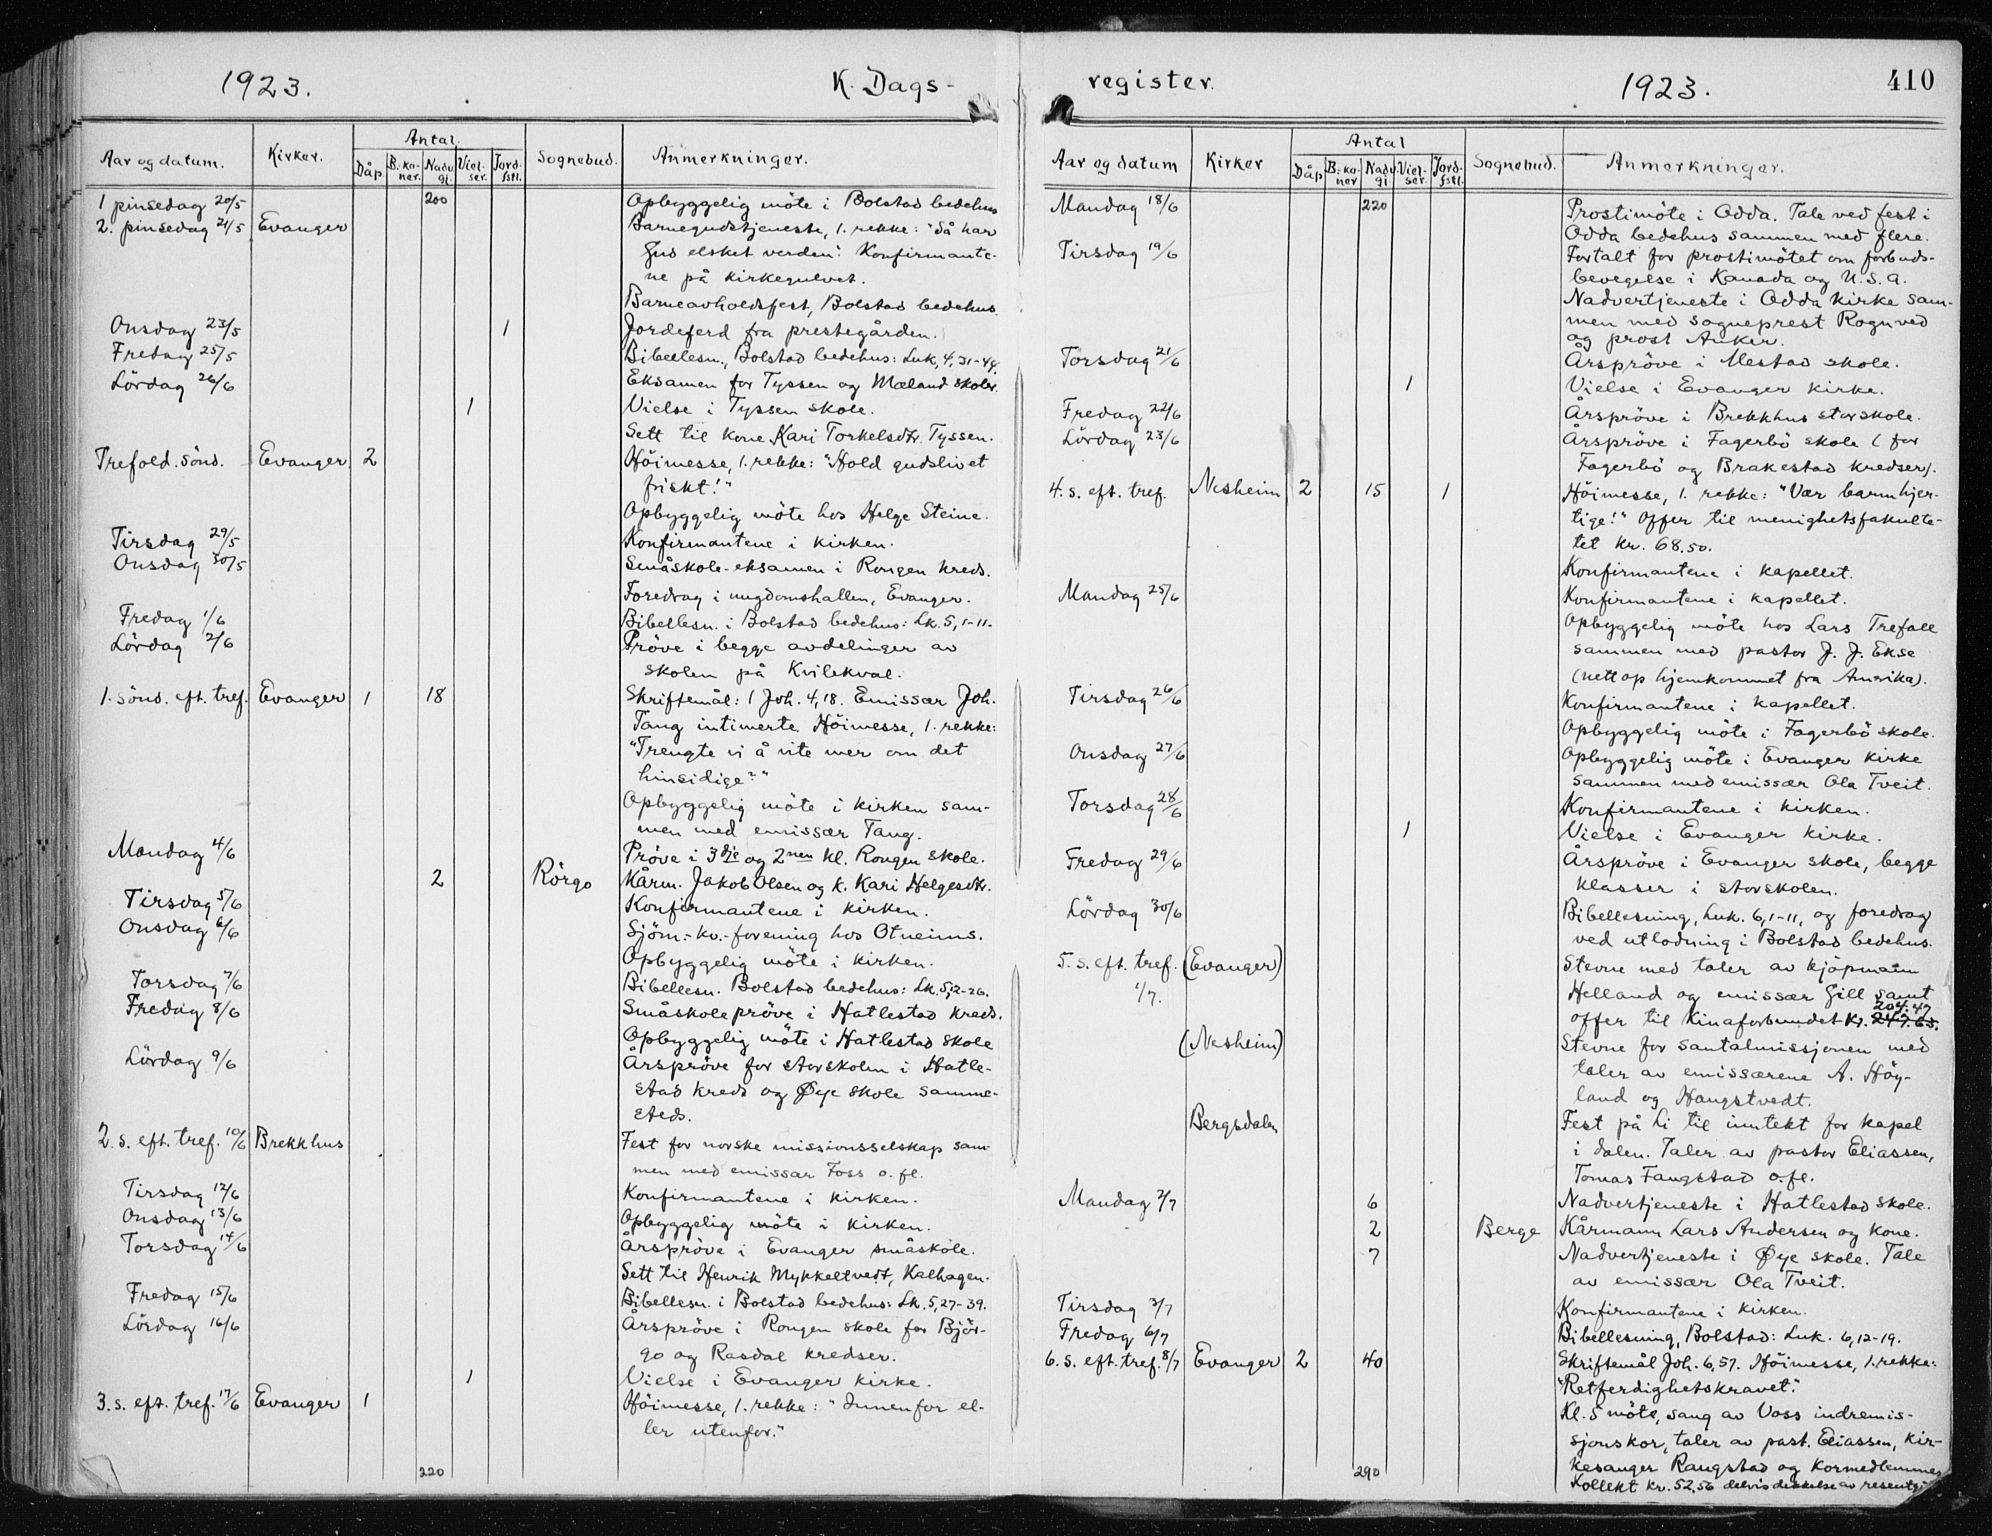 1923. K. Dags-
Antal.
Aar og datum. Kirker. Dåp B.-ko-ner. Nadv.gj. Viel-ser. Jord-fstl. Sognebud. Anmerkninger.
1 pinsedag 20/5 200 Opbyggelig möte i Bolstad bedehus
2. pinsedag 21/5 Evanger Barnegudstjeneste, 1. rekke: "Så har
Gud elsket verden". Konfirmante-
ne på kirkegulvet.
Barneavholdsfest, Bolstad bedehus.
Onsdag 23/5 1 Jordeferd fra prestegården.
Fredag 25/5 Bibellesn., Bolstad bedehus: Luk. 4, 31-44.
Lördag 26/6 Eksamen for Tyssen og Mæland skoler.
1 Vielse i Tyssen skole.
Sett til kone Kari Torkelsdtr. Tyssen.
Trefold. sönd. Evanger 2 Höimesse, 1. rekke: "Hold gudslivet
friskt!"
Opbyggelig möte hos Helge Steine.
Tirsdag 29/5 Konfirmantene i kirken.
Onsdag 30/5 Småskole-eksamen i Rongen kreds.
Foredrag i ungdomshallen, Evanger.
Fredag 1/6 Bibellesn. i Bolstad bedehus: Lk. 5, 1-11.
Lördag 2/6 Pröve i begge avdelinger av
skolen på Kvilekval.
1. sönd. eft. tref. Evanger 1 18 Skriftemål: 1 Joh. 4, 18. Emissær Joh.
Tang intimerte. Höimesse, 1. rekke:
"Trengte vi å vite mer om det
hinsidige?"
Opbyggelig möte i kirken sam-
men med emissær Tang.
Mandag 4/6 Pröve i 3dje og 2nen kl. Rongen skole.
2 Rörgo Kårm. Jakob Olsen og k. Kari Helgesdtr.
Tirsdag 5/6 Konfirmantene i kirken.
Onsdag 6/6 Sjöm.-kv.-forening hos Otneims.
Opbyggelig möte i kirken.
Torsdag 7/6 Bibellesn. Bolstad bedehus: Lk. 5, 12-26.
Fredag 8/6 Småskolepröve i Hatlestad kreds.
Opbyggelig möte i Hatlestad skole
Lördag 9/6 Årspröve for storskolen i Hatle-
stad kreds og Øye skole samme-
steds.
2. s. eft. tref. 10/6 Brekkhus Fest for norske missionsselskap sam-
men med emissær Foss o. fl.
Tirsdag 12/6 Konfirmantene i kirken.
Onsdag 13/6 Opbyggelig möte i kirken.
Torsdag 14/6 Årspröve i Evanger småskole.
Sett til Henrik Mykkeltvedt, Kalhagen.
Fredag 15/6 Bibellesn. i Bolstad bedehus: Lk. 5, 27-39.
Lördag 16/6 Årspröve i Rongen skole for Björ-
go og Rasdal kredser.
1 Vielse i Evanger kirke.
3. s. eft. tref. 17/6 Evanger 1 Höimesse, 1. rekke: "Innenfor el-
ler utenfor."
220
register. 1923. 410
Antal
Aar og datum Kirker Dåp B.-ko-ner Nadv.gj. Viel-ser. Jord-fstl. Sognebud. Anmerkninger.
Mandag 18/6 220 Prostimöte i Odda. Tale ved fest i
Odda bedehus sammen med flere.
Tirsdag 19/6 Fortalt for prostimötet om forbuds-
bevegelse i Kanada og U.S.A.
Nadvertjeneste i Odda kirke sam-
men med sogneprest Rognved
og prost Anker.
Torsdag 21/6 Årspröve i Mestad skole.
1 Vielse i Evanger kirke.
Fredag 22/6 Årspröve i Brekkhus storskole.
Lördag 23/6 Årspröve i Fagerbö skole (for
Fagerbö og Brakestad kredser).
4. s. eft. tref. Nesheim 2 15 1 Höimesse, 1. rekke: "Vær barmhjer-
tige!" Offer til menighetsfakulte-
tet kr. 68.50.
Konfirmantene i kapellet.
Mandag 25/6 Konfirmantene i kapellet.
Opbyggelig möte hos Lars Trefall
sammen med pastor J. J. Ekse
(nettop hjemkommet fra Amerika).
Tirsdag 26/6 Konfirmantene i kapellet.
Opbyggelig möte i Fagerbö skole.
Onsdag 27/6 Opbyggelig möte i Evanger kirke
sammen med emissær Ola Tveit.
Torsdag 28/6 Konfirmantene i kirken.
1 Vielse i Evanger kirke.
Fredag 29/6 Årspröve i Evanger skole, begge
klasser i storskolen.
Lördag 30/6 Bibellesning, Luk. 6, 1-11, og foredrag
ved utlodning i Bolstad bedehus.
5. s. eft. tref. (Evanger) Stevne med taler av kjöpmann
1/7. Helland og emissær Gill samt
204.47
offer til Kinaforbundet kr. 247.65.
(Nesheim) Stevne for santalmissjonen med
taler av emissærene A. Höy-
land og Haugstvedt.
Bergsdalen Fest på Li til inntekt for kapel
i dalen. Taler av pastor Eliassen,
Tomas Fangstad o. fl.
Mandag 2/7 6 Nadvertjeneste i Hatlestad skole.
2 Berge Kårmann Lars Andersen og kone.
7 Nadvertjeneste i Øye skole. Tale
av emissær Ola Tveit.
Tirsdag 3/7 Konfirmantene i kirken.
Fredag 6/7 Bibellesning, Bolstad: Luk. 6, 12-19.
6. s. eft. tref. 8/7 Evanger 2 40 Skriftemål Joh. 6, 57. Höimesse, 1. rekke:
"Retferdighetskravet."
Kl. 5 möte, sang av Voss indremis-
sjonskor, taler av past. Eliassen, kir-
kesanger Rangstad og kormedlemmer
290 Kollekt kr. 52,56 delvis dekkelse av